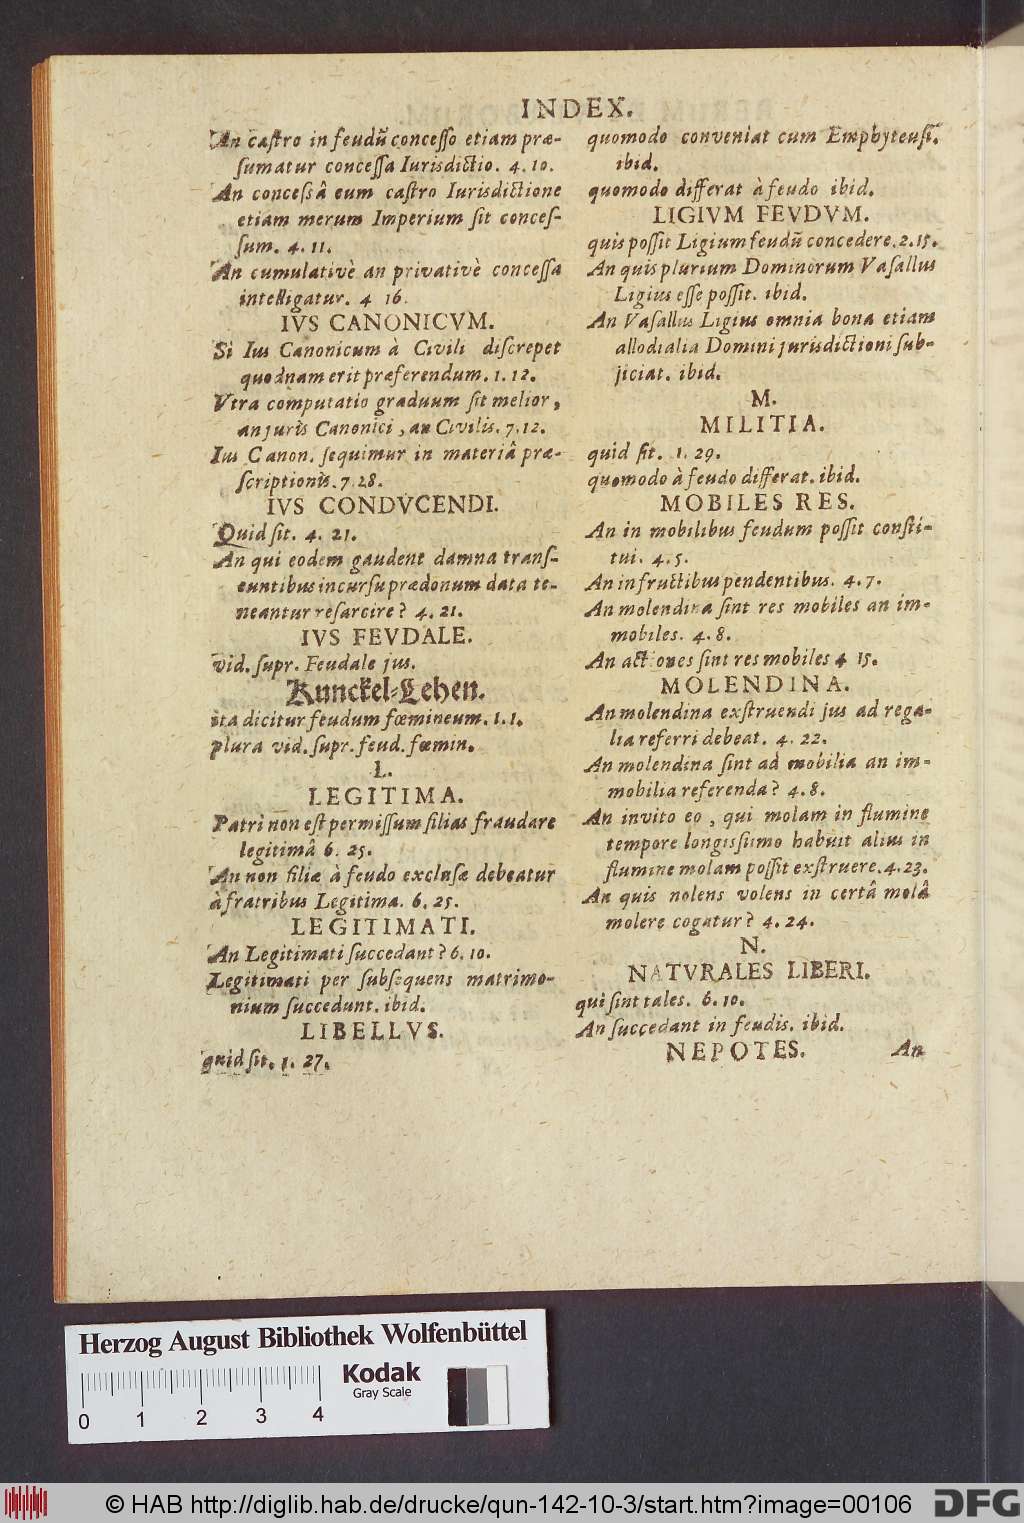 INDEX.
An castro in feudũ concesso etiam præ-
sumatur concessa Iurisdictio. 4. 10.
An concessâ cum castro Iurisdictione
etiam merum Imperium sit conces-
sum. 4. 11.
An cumulativè an privativè concessa
intelligatur. 4 16.
IVS CANONICVM.
Si Ius Canonicum à Civili discrepet
quodnam erit præferendum. 1. 12.
Vtra computatio graduum sit melior,
an juris Canonici, an Civilis. 7. 12.
Ius Canon. sequimur in materiâ præ-
scriptionis. 7. 28.
IVS CONDVCENDI.
Quid sit. 4. 21.
An qui eodem gaudent damna trans-
euntibus incursu prædonum data te-
neantur resarcire? 4. 21.
IVS FEVDALE.
vid. supr. Feudale jus.
Kunckel-Lehen.
ita dicitur feudum fœmineum. 1. 1.
plura vid. supr. feud. fœmin.
L.
LEGITIMA.
Patri non est permissum filias fraudare
legitimâ 6. 25.
An non filiæ à feudo exclusæ debeatur
à fratribus Legitima. 6. 25.
LEGITIMATI.
An Legitimati succedant? 6. 10.
Legitimati per subsequens matrimo-
nium succedunt. ibid.
LIBELLVS.
quid sit. 1. 27.
quomodo conveniat cum Emphyteusi.
ibid.
quomodo differat à feudo ibid.
LIGIVM FEVDVM.
quis possit Ligium feudũ concedere. 2. 15.
An quis plurium Dominorum Vasallus
Ligius esse possit. ibid.
An Vasallus Ligius omnia bona etiam
allodialia Domini jurisdictioni sub-
jiciat. ibid.
M.
MILITIA.
quid sit. 1. 29.
quomodo à feudo differat. ibid.
MOBILES RES.
An in mobilibus feudum possit consti-
tui. 4. 5.
An in fructibus pendentibus. 4. 7.
An molendina sint res mobiles an im-
mobiles. 4. 8.
An actiones sint res mobiles 4 15.
MOLENDINA.
An molendina exstruendi jus ad rega-
lia referri debeat. 4. 22.
An molendina sint ad mobilia an im-
mobilia referenda? 4. 8.
An invito eo, qui molam in flumine
tempore longissimo habuit alius in
flumine molam possit exstruere. 4. 23.
An quis nolens volens in certâ molâ
molere cogatur? 4. 24.
N.
NATVRALES LIBERI.
qui sint tales. 6. 10.
An succedant in feudis. ibid.
NEPOTES. An
Herzog August Bibliothek Wolfenbüttel
Kodak
Gray Scale
0 1 2 3 4
© HAB http://diglib.hab.de/drucke/qun-142-10-3/start.htm?image=00106
DFG